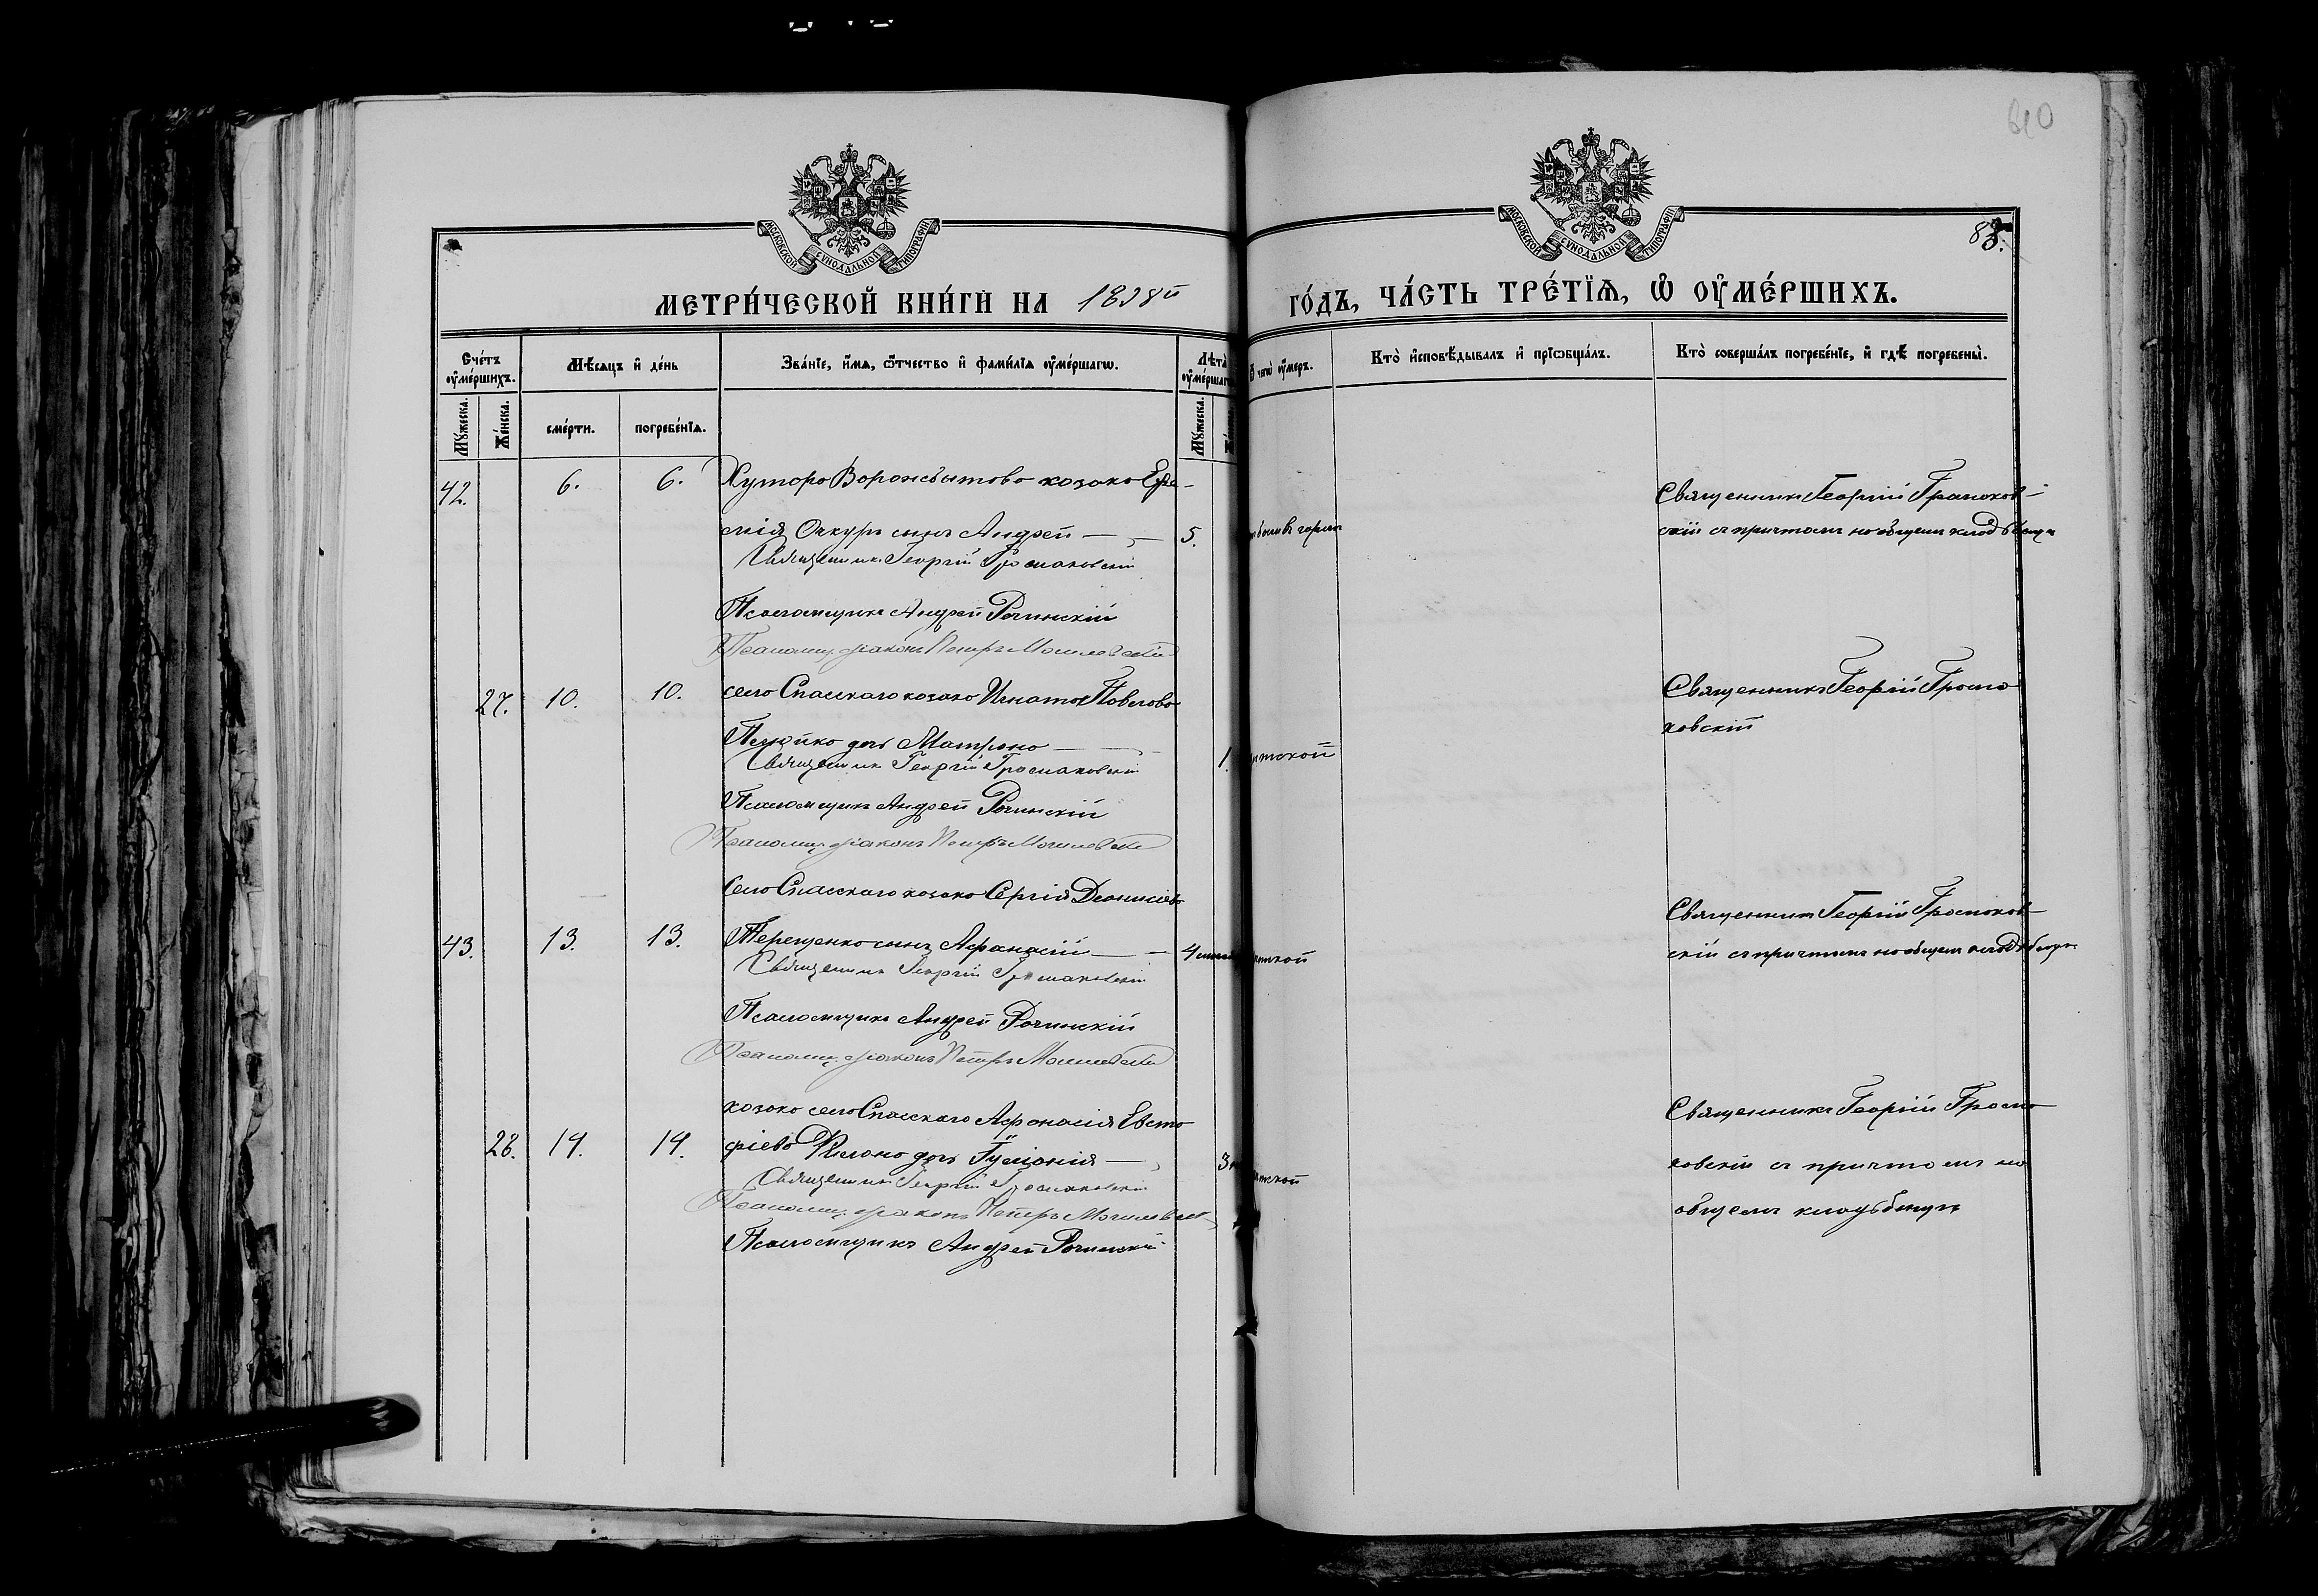 610
МОСКОВСКОЙ СѴНОДАЛЬНОЙ ТИПОГРАФІИ
МОСКОВСКОЙ СѴНОДАЛЬНОЙ ТИПОГРАФІИ
83.
МЕТРИ́ЧЕСКОЙ КНИ́ГИ НА 1898й
ГО́ДЪ, ЧА́СТЬ ТРЕ́ТЇѦ, Ѡ ОУМЕ́РШИХЪ.
Сче́тъ оуме́ршихъ.
Мѣ́сяцъ и де́нь
Зва́нїе, и́мя, ѻ́тчество и фами́лїя оуме́ршагѡ.
Лѣта̀ оуме́ршагѡ
чегѡ̀ оу́меръ.
Кто̀ исповѣ́дывалъ и прїѡбща́лъ.
Кто̀ соверша́лъ погребе́нїе, и гдѣ̀ погребены̀.
Мꙋ́жеска.
Же́нска.
сме́рти.
погребе́нїя.
Мꙋ́жеска.
42.
6.
6.
Хутора Ворожбытова козака Ефре-
мія Очкуръ сынъ Андрей
5.
Священникъ Георгій Громаковскій
Псаломщикъ Андрей Рочинскій
Псаломщ. діаконъ Петръ Могилевскій
Священникъ Георгій Громаков-
скій съ причтомъ на общем кладбищѣ
27.
10.
10.
села Спасскаго козака Игнатія Павлова
дочь Матрона
1.
Священникъ Георгій Громаковскій
Псаломщикъ Андрей Рочинскій
Псаломщ. діаконъ Петръ Могилевскій
Священникъ Георгій Грома
ковскій
43.
13.
13.
Села Спасскаго козака Сергія Діонисіева
Терещенко сынъ Афанасій
4
Священникъ Георгій Громаковскій
Псаломщикъ Андрей Рочинскій
Псаломщ. діаконъ Петръ Могилевскій
Священникъ Георгій Громаков-
скій съ причтомъ на общем кладбищѣ
28.
14.
14.
козака села Спасскаго Афанасія Евста
фіева дочь Іуліанія
3
Священникъ Георгій Громаковскій
Псаломщ. діаконъ Петръ Могилевскій
Псаломщикъ Андрей Рочинскій
Священникъ Георгій Грома
ковскій съ причтомъ на
общемъ кладбищѣ